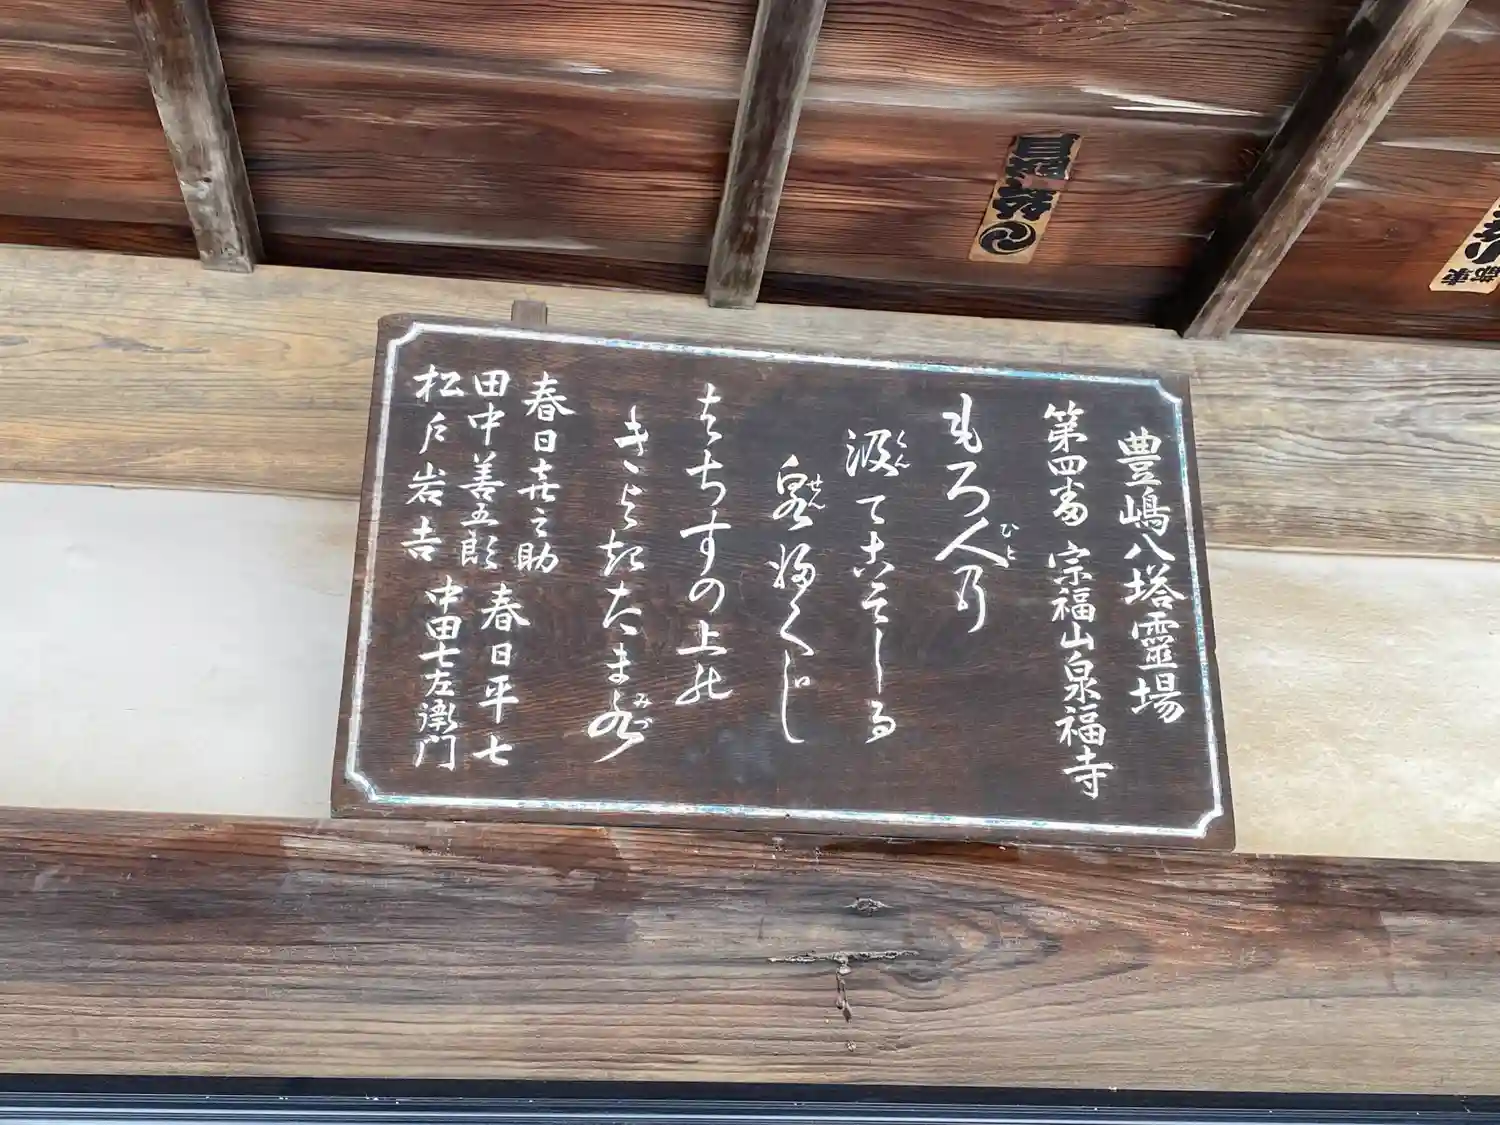 豊嶋八塔靈場
第四番 宗福山泉福寺
もろ人乃
ひと
汲てこそしる
くん
泉婦くじ
せん
はちすの上の
きよきたま水
みづ
春日喜之助
田中善五郎 春日平七
松戸岩吉 中田七左衛門